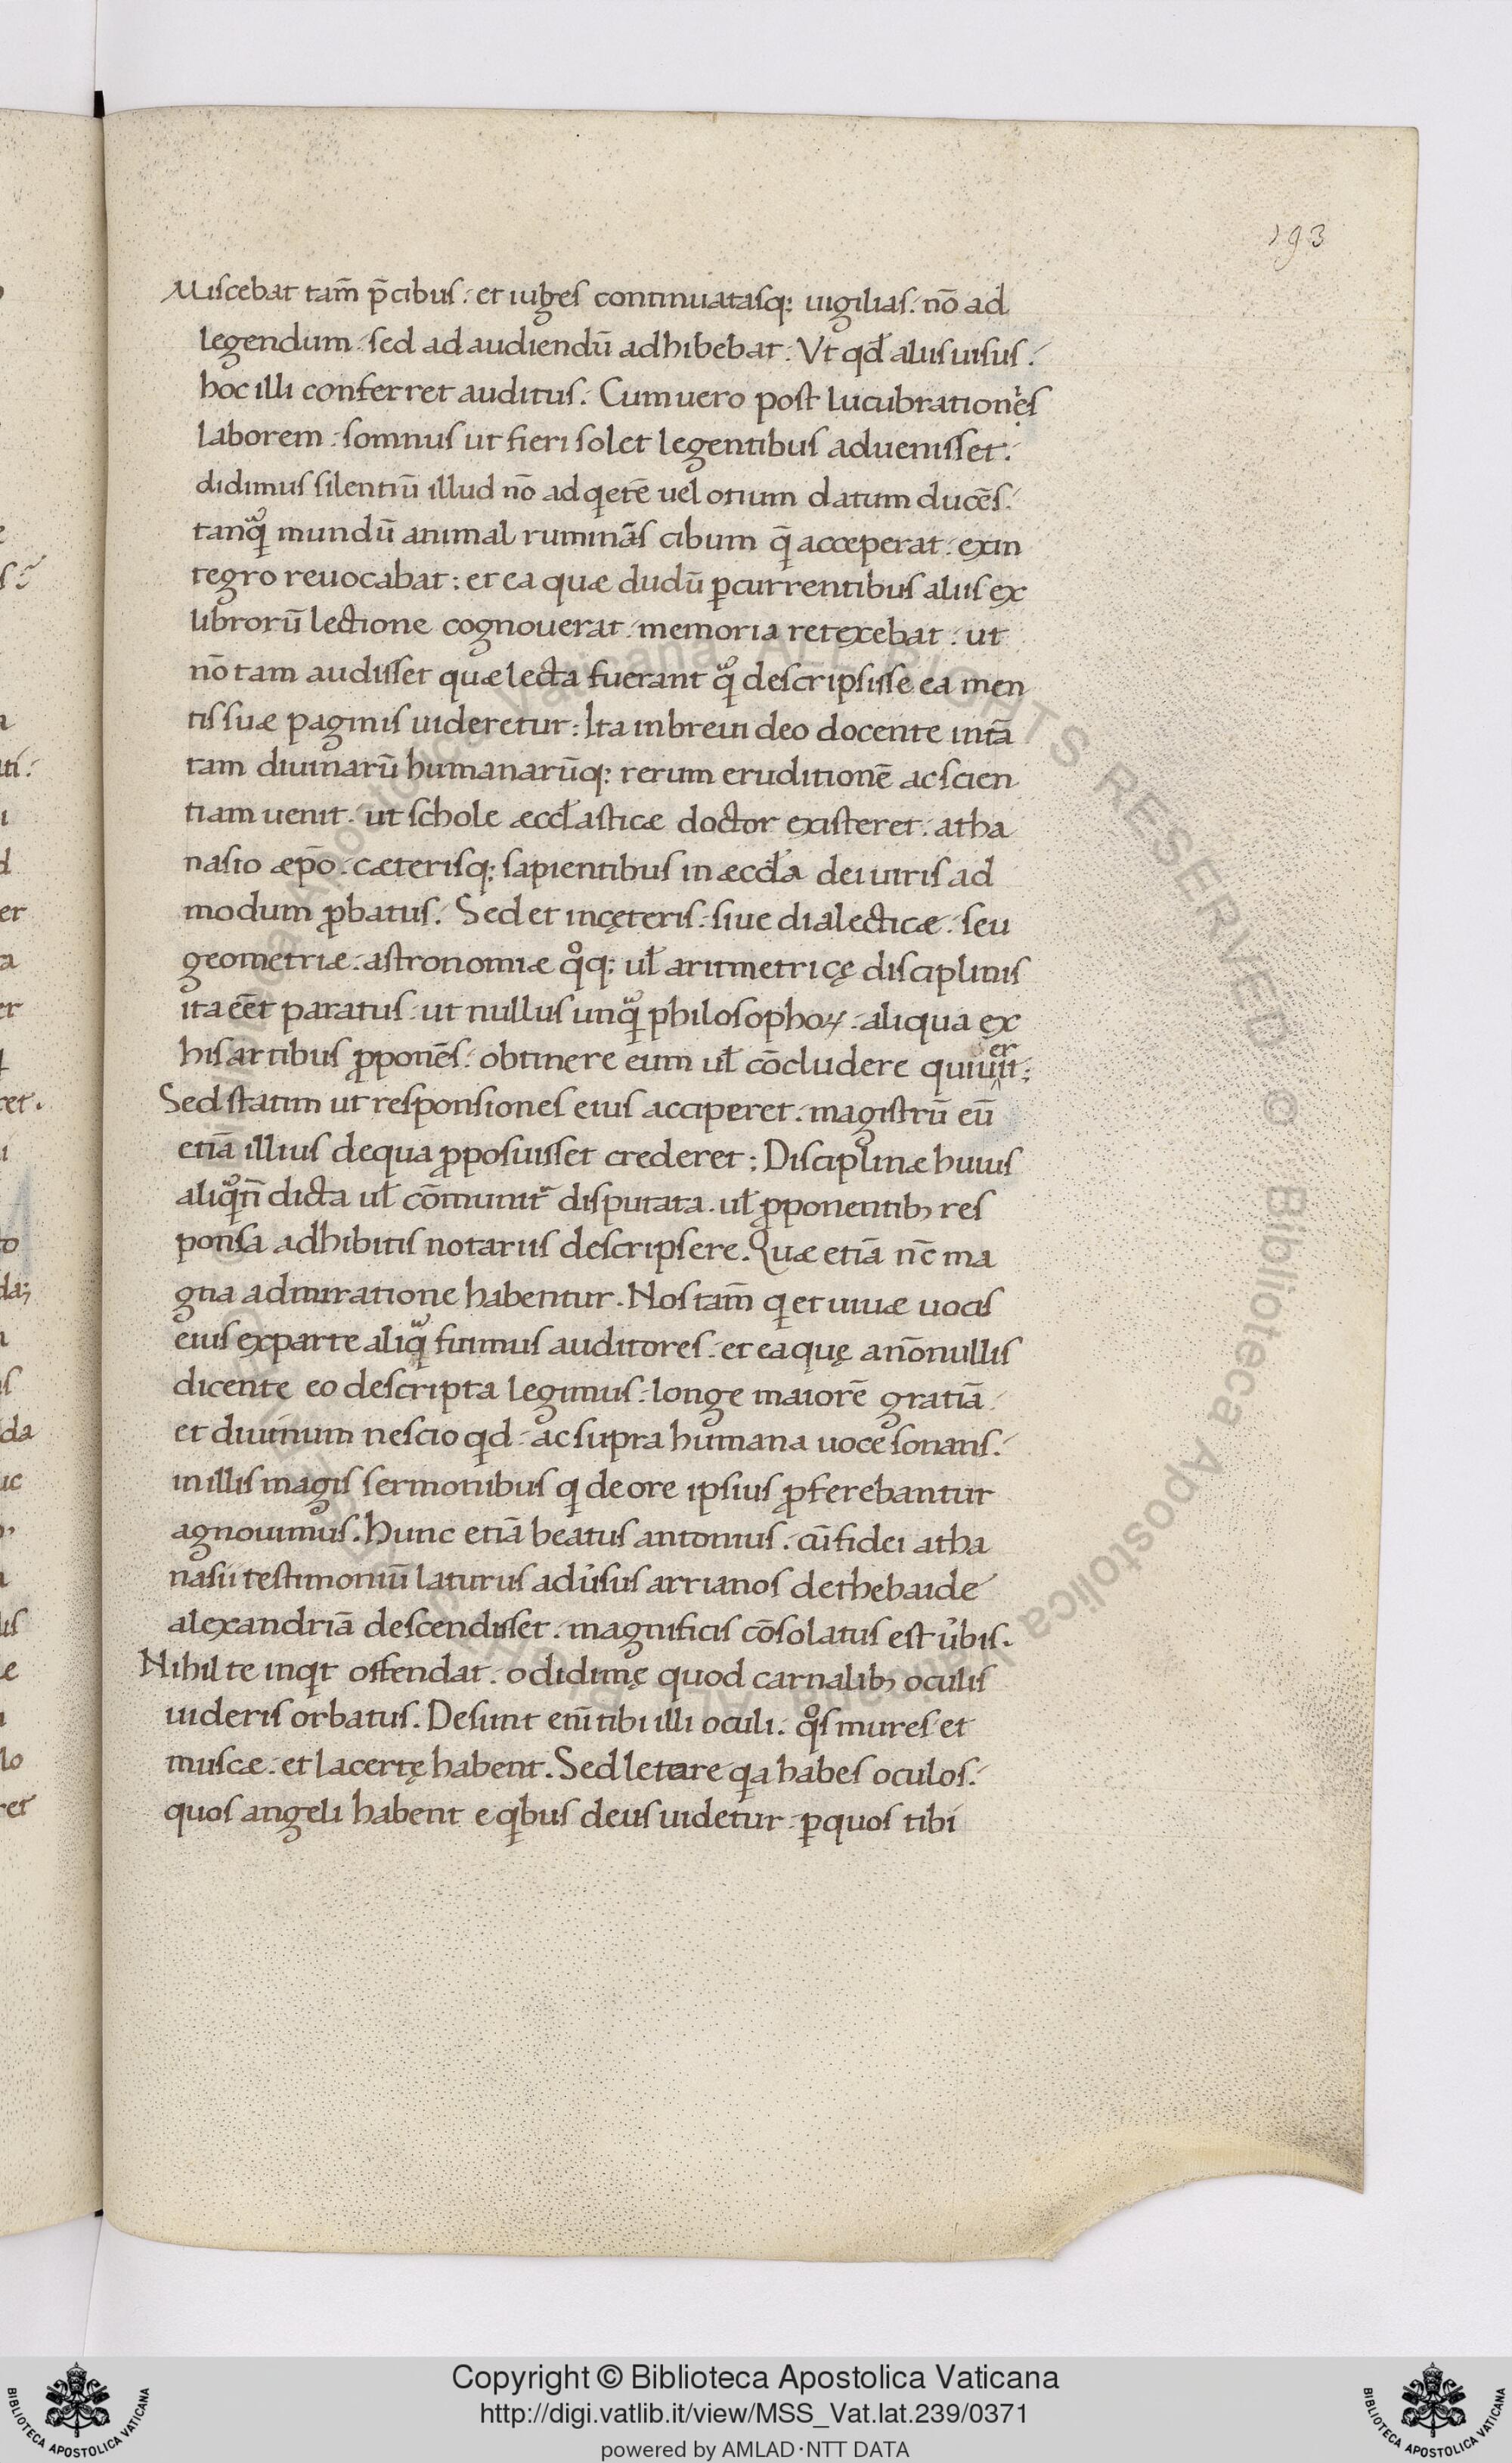 193
Miscebat tam̄ p̄cibus. et iuges continuatasq; uigilias. nō ad
legendum. sed ad audiendū adhibebat. Vt qđ aliis uisus.
hoc illi conferret auditus. Cum uero post lucubrationes
laborem. somnus ut fieri solet legentibus aduenisset.
didimus silentiū illud nō ad qͥetē uel otium datum ducēs.
tanqͣ mundū animal ruminās cibum q̄ acceperat. ex in
tegro reuocabat; et ea quæ dudū ꝑcurrentibus aliis ex
librorū lectione cognouerat. memoria retexebat. ut
nō tam audisset quæ lecta fuerant qͣ descripsisse ea men
tis suæ paginis uideretur; Ita in breui deo docente in tā
tam diuinarū humanarūq; rerum eruditionē ac scien
tiam uenit. ut schole æccłasticæ doctor existeret. atha
nasio æpō. cæterisq; sapientibus in æccła dei uiris ad
modum ꝓbatus. Sed et in cęteris. siue dialecticæ. seu
geometriæ. astronomiæ qͦq; uł aritmetricę disciplinis
ita eēt paratus. ut nullus unqͣ philosophoꝝ. aliqua ex
his artibus ꝓponēs. obtinere eum uł cōcludere quiuerit;
Sed statim ut responsiones eius acciperet. magistrū eū
etiā illius de qua ꝓposuisset crederet; Disciplinæ huius
aliqͣn̄ dicta uł cōmunit̄ disputata. uł ꝓponentib; res
ponsa adhibitis notariis descripsere. Quæ etiā nc̄ ma
gna admiratione habentur. Nos tam̄ qͥ et uiuæ uocis
eius ex parte aliqͣ fuimus auditores. et ea quę a nōnullis
dicente eo descripta legimus. longe maiorē gratiā
et diuinum nescio qͥd. ac supra humana uoce sonans.
in illis magis sermonibus qͥ de ore ipsius ꝓferebantur
agnouimus. Hunc etiā beatus antonius. cū fidei atha
nasii testimoniū laturus aduͥsus arrianos de thebaide
alexandriā descendisset. magnificis cōsolatus est uͥbis.
Nihil te inqͥt offendat. o didimę quod carnalib; oculis
uideris orbatus. Desunt enī tibi illi oculi. qͦs mures et
muscæ. et lacertę habent. Sed letare qͥa habes oculos.
quos angeli habent e qͥbus deus uidetur. ꝑ quos tibi
Copyright © Biblioteca Apostolica Vaticana
http://digi.vatlib.it/view/MSS_Vat.lat.239/0371
powered by AMLAD·NTT DATA